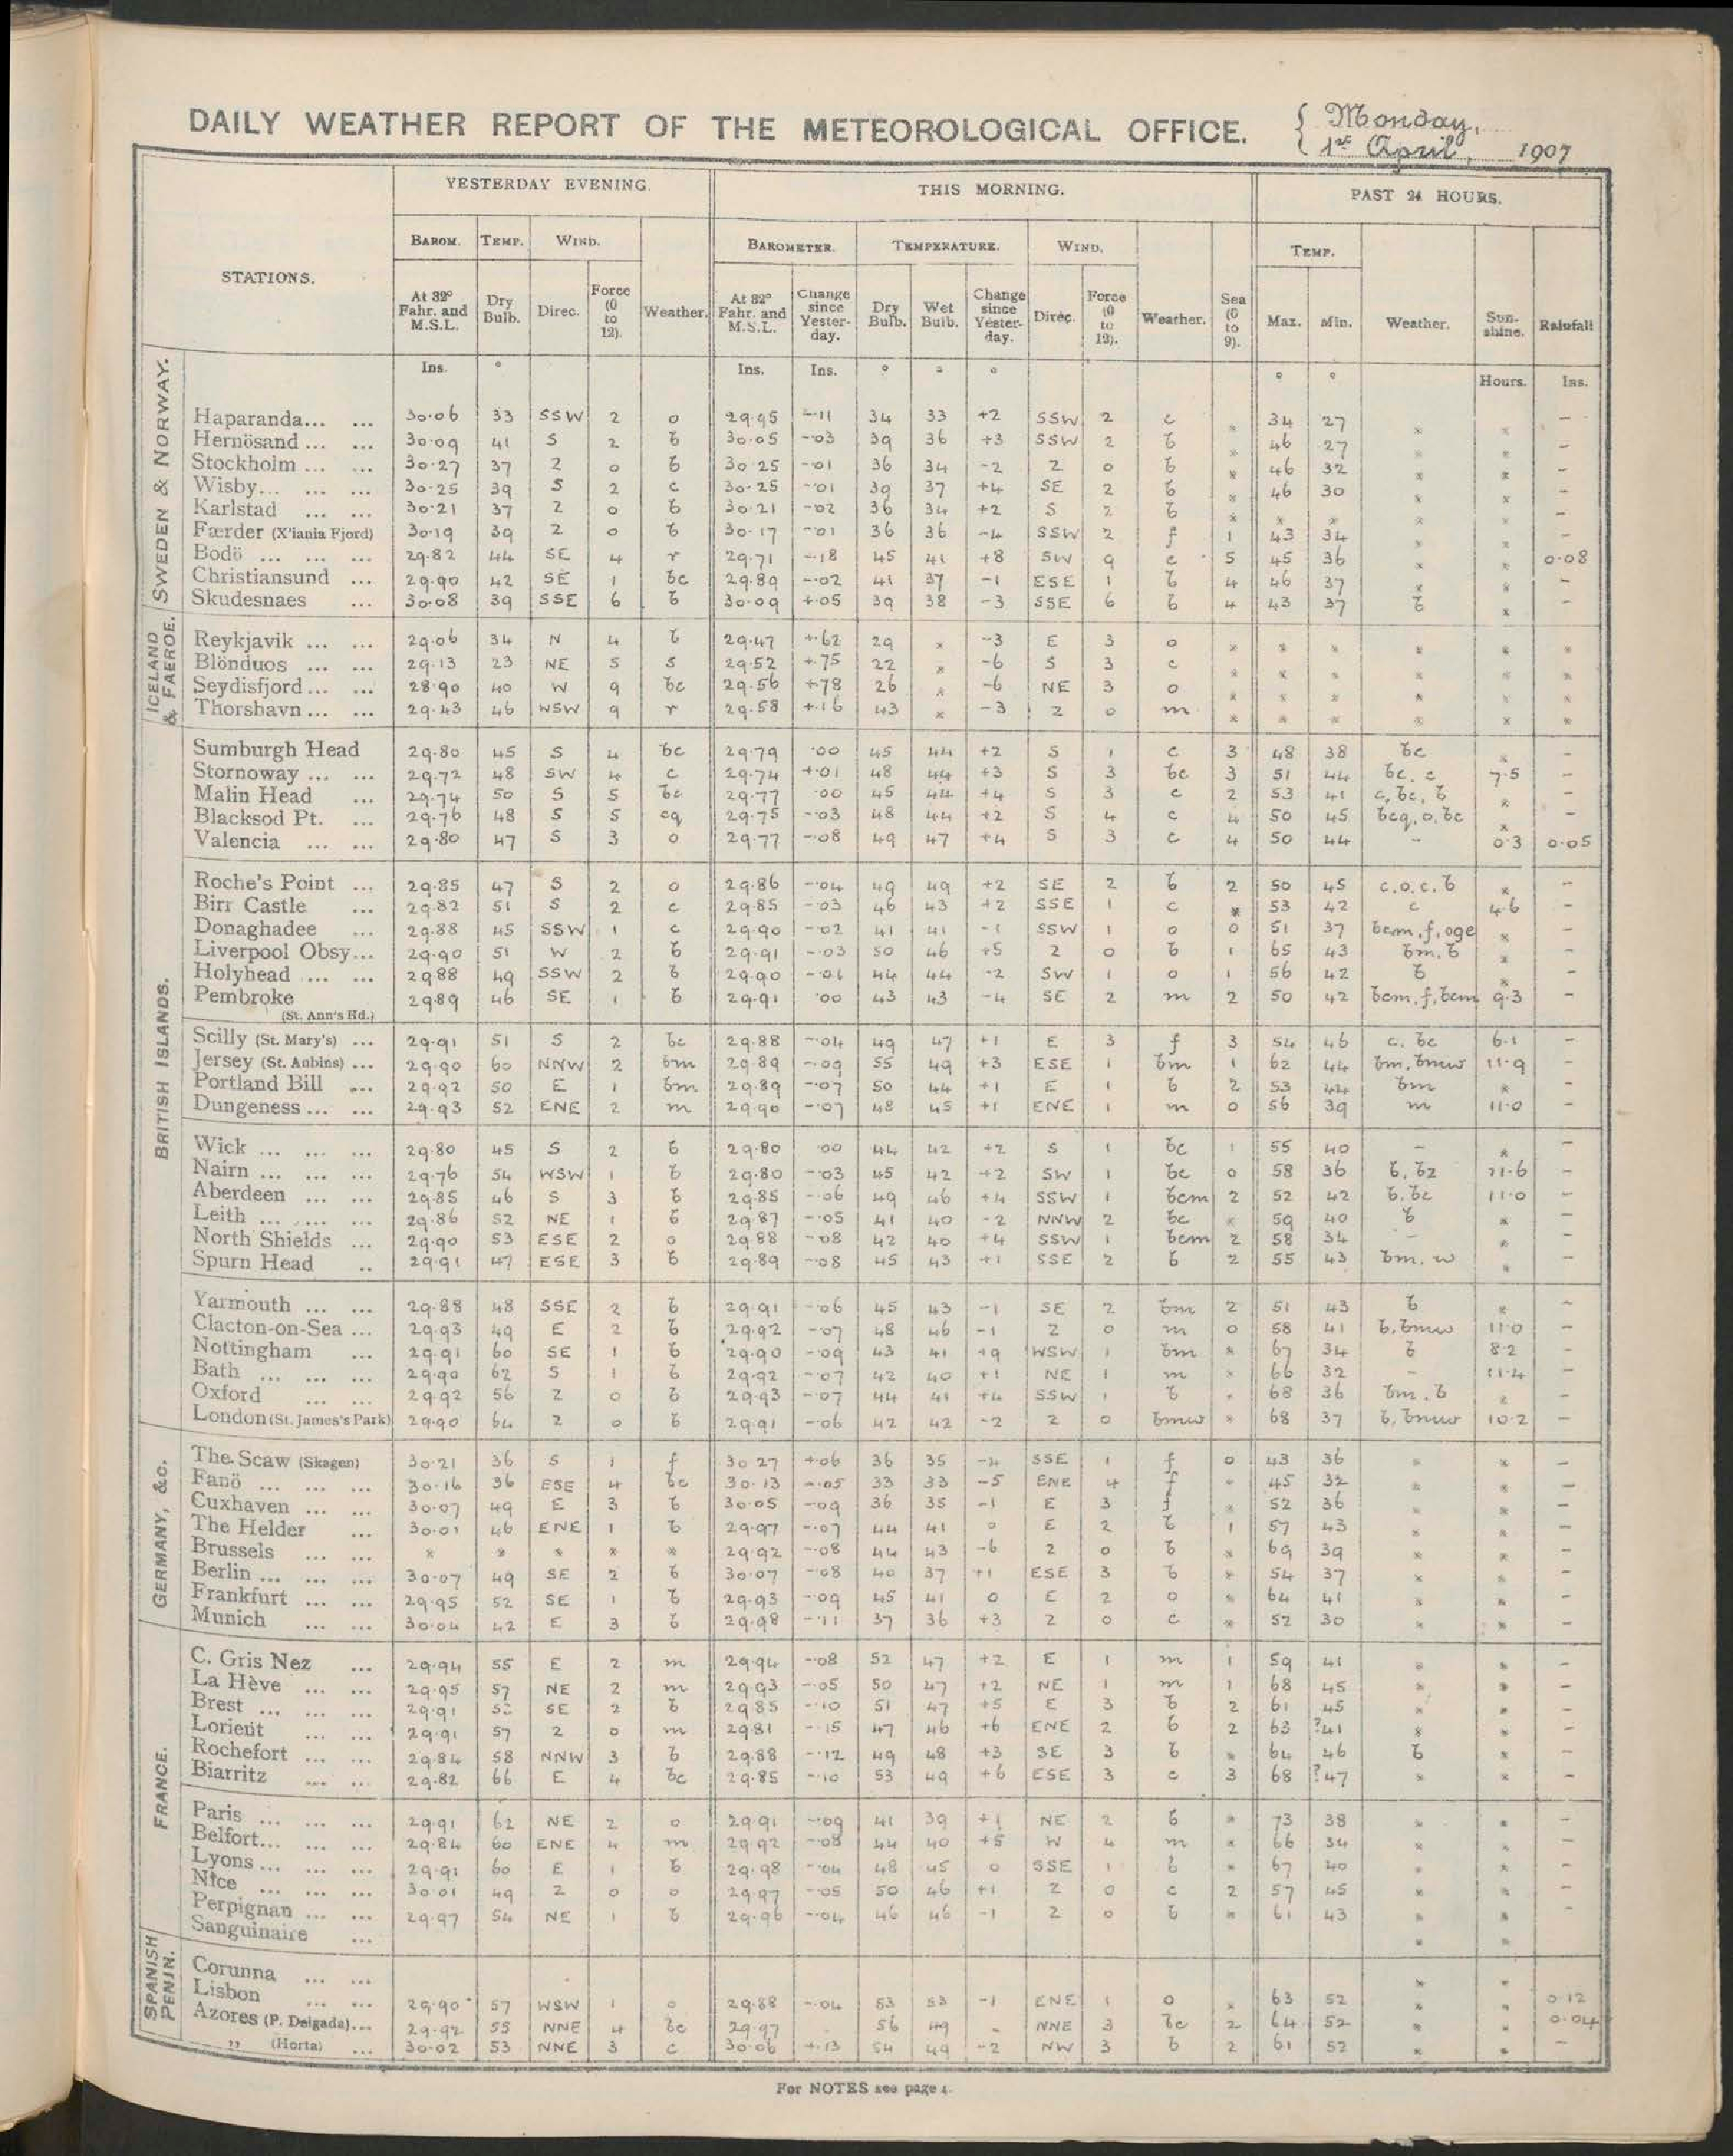 DAILY WEATHER REPORT OF THE METEOROLOGICAL OFFICE. { Monday, 1st April, 1907
YESTERDAY EVENING. THIS MORNING. PAST 24 HOURS.
STATIONS. BAROM. TEMP. WIND. Weather. BAROMETER. TEMPERATURE. WIND. Weather. Sea (0 to 9). TEMP. Weather. Sun-shine. Rainfall
At 32° Fahr. and M.S.L. Dry Bulb. Direc. Force (0 to 12). At 32° Fahr. and M.S.L. Change since Yester-day. Dry Bulb. Wet Bulb. Change since Yester-day. Direc. Force (0 to 12). Max. Min.
Ins. ° Ins. Ins. ° ° ° ° ° Hours. Ins.
SWEDEN & NORWAY.
Haparanda... ... 30·06 33 SSW 2 o 29·95 -·11 34 33 +2 SSW 2 c * 34 27 * * -
Hernösand ... ... 30·09 41 S 2 b 30·05 -·03 39 36 +3 SSW 2 b * 46 27 * * -
Stockholm ... ... 30·27 37 Z 0 b 30·25 -·01 36 34 -2 Z 0 b * 46 32 * * -
Wisby... ... ... 30·25 39 S 2 c 30·25 -·01 39 37 +4 SE 2 b * 46 30 * * -
Karlstad ... ... 30·21 37 Z 0 b 30·21 -·02 36 34 +2 S 2 b * * * * * -
Færder (X'iania Fjord) 30·19 39 Z 0 b 30·17 -·01 36 36 -4 SSW 2 f 1 43 34 * * -
Bodö ... ... ... 29·82 44 SE 4 r 29·71 -·18 45 41 +8 SW 9 c 5 45 36 * * 0·08
Christiansund ... 29·90 42 SE 1 bc 29·89 -·02 41 37 -1 ESE 1 b 4 46 37 * * -
Skudesnaes ... 30·08 39 SSE 6 b 30·09 +·05 39 38 -3 SSE 6 b 4 43 37 b * -
ICELAND & FAEROE.
Reykjavik ... ... 29·06 34 N 4 b 29·47 +·62 29 * -3 E 3 o * * * * * *
Blönduos ... ... 29·13 23 NE 5 s 29·52 +·75 22 * -6 S 3 c * * * * * *
Seydisfjord ... ... 28·90 40 W 9 bc 29·56 +·78 26 * -6 NE 3 o * * * * * *
Thorshavn ... ... 29·43 46 WSW 9 r 29·58 +·16 43 * -3 Z 0 m * * * * * *
BRITISH ISLANDS.
Sumburgh Head 29·80 45 S 4 bc 29·79 ·00 45 44 +2 S 1 c 3 48 38 bc * -
Stornoway ... ... 29·72 48 SW 4 c 29·74 +·01 48 44 +3 S 3 bc 3 51 44 bc, c 7·5 -
Malin Head ... 29·74 50 S 5 bc 29·77 ·00 45 44 +4 S 3 c 2 53 41 c, bc, b * -
Blacksod Pt. ... 29·76 48 S 5 cq 29·75 -·03 48 44 +2 S 4 c 4 50 45 bcq, o, bc * -
Valencia ... ... 29·80 47 S 3 o 29·77 -·08 49 47 +4 S 3 c 4 50 44 - 0·3 0·05
Roche's Point ... 29·85 47 S 2 o 29·86 -·04 49 49 +2 SE 2 b 2 50 45 c, o, c, b * -
Birr Castle ... 29·82 51 S 2 c 29·85 -·03 46 43 +2 SSE 1 c * 53 42 c 4·6 -
Donaghadee ... 29·88 45 SSW 1 c 29·90 -·02 41 41 -1 SSW 1 o 0 51 37 bcm, f, oge * -
Liverpool Obsy... 29·90 51 W 2 b 29·91 -·03 50 46 +5 Z 0 b 1 65 43 bm, b * -
Holyhead ... ... 29·88 49 SSW 2 b 29·90 44 44 -2 SW 1 o 1 56 42 b * -
Pembroke (St. Ann's Hd.) 29·89 46 SE 1 b 29·91 ·00 43 43 -4 SE 2 m 2 50 42 bcm, f, bcm 9·3 -
Scilly (St. Mary's) ... 29·91 51 S 2 bc 29·88 -·04 49 47 +1 E 3 f 3 54 46 c, bc 6·1 -
Jersey (St. Aubins) ... 29·90 60 NNW 2 bm 29·89 -·09 55 49 +3 ESE 1 bm 1 62 44 bm, bmw 11·9 -
Portland Bill ... 29·92 50 E 1 bm 29·89 -·07 50 44 +1 E 1 b 2 53 44 bm * -
Dungeness ... ... 29·93 52 ENE 2 m 29·90 -·07 48 45 +1 ENE 1 m 0 56 39 m 11·0 -
Wick ... ... ... 29·80 45 S 2 b 29·80 ·00 44 42 +2 S 1 bc 1 55 40 - * -
Nairn ... ... ... 29·76 54 WSW 1 b 29·80 -·03 45 42 +2 SW 1 bc 0 58 36 b, bz 11·6 -
Aberdeen ... ... 29·85 46 S 3 b 29·85 -·06 49 46 +4 SSW 1 bcm 2 52 42 b, bc 11·0 -
Leith ... ... ... 29·86 52 NE 1 b 29·87 -·05 41 40 -2 NNW 2 bc * 59 40 b * -
North Shields ... 29·90 53 ESE 2 o 29·88 -·08 42 40 +4 SSW 1 bcm 2 58 34 - * -
Spurn Head .. 29·91 47 ESE 3 b 29·89 -·08 45 43 +1 SSE 2 b 2 55 43 bm, w * -
Yarmouth ... ... 29·88 48 SSE 2 b 29·91 -·06 45 43 -1 SE 2 bm 2 51 43 b * -
Clacton-on-Sea ... 29·93 49 E 2 b 29·92 -·07 48 46 -1 Z 0 m 0 58 41 b, bmw 11·0 -
Nottingham ... 29·91 60 SE 1 b 29·90 -·09 43 41 +9 WSW 1 bm * 67 34 b 8·2 -
Bath ... ... ... 29·90 62 S 1 b 29·92 -·07 42 40 +1 NE 1 m * 66 32 - 11·4 -
Oxford ... ... 29·92 56 Z 0 b 29·93 -·07 44 41 +4 SSW 1 b * 68 36 bm, b * -
London (St. James's Park) 29·90 64 Z 0 b 29·91 -·06 42 42 -2 Z 0 bmw * 68 37 b, bmw 10·2 -
GERMANY, &c.
The Scaw (Skagen) 30·21 36 S 1 f 30·27 +·06 36 35 -4 SSE 1 f 0 43 36 * * -
Fanö ... ... ... 30·16 36 ESE 4 bc 30·13 -·05 33 33 -5 ENE 4 f * 45 32 * * -
Cuxhaven ... ... 30·07 49 E 3 b 30·05 -·09 36 35 -1 E 3 f * 52 36 * * -
The Helder ... 30·01 46 ENE 1 b 29·97 -·07 44 41 0 E 2 b 1 57 43 * * -
Brussels ... ... * * * * * 29·92 -·08 44 43 -6 Z 0 b * 69 39 * * -
Berlin ... ... ... 30·07 49 SE 2 b 30·07 -·08 40 37 +1 ESE 3 b * 54 37 * * -
Frankfurt ... ... 29·95 52 SE 1 b 29·93 -·09 45 41 0 E 2 o * 64 41 * * -
Munich ... ... 30·04 42 E 3 b 29·98 -·11 37 36 +3 Z 0 c * 52 30 * * -
FRANCE.
C. Gris Nez ... 29·94 55 E 2 m 29·94 -·08 52 47 +2 E 1 m 1 59 41 * * -
La Hève ... ... 29·95 57 NE 2 m 29·93 -·05 50 47 +2 NE 1 m 1 68 45 * * -
Brest ... ... ... 29·91 SE 2 b 29·85 -·10 51 47 +5 E 3 b 2 61 45 * * -
Lorient ... ... 29·91 57 Z 0 m 29·81 -·15 47 46 +6 ENE 2 b 2 63 ?41 * * -
Rochefort ... ... 29·84 58 NNW 3 b 29·88 -·12 49 48 +3 SE 3 b * 64 46 b * -
Biarritz ... ... 29·82 66 E 4 bc 29·85 -·10 53 49 +6 ESE 3 c 3 68 ?47 * * -
Paris ... ... ... 29·91 62 NE 2 o 29·91 -·09 41 39 +1 NE 2 b * 73 38 * * -
Belfort... ... ... 29·84 60 ENE 4 m 29·92 -·08 44 40 +5 W 4 m * 66 34 * * -
Lyons ... ... ... 29·91 60 E 1 b 29·98 -·04 48 45 0 SSE 1 b * 67 40 * * -
Nice ... ... ... 30·01 49 Z 0 o 29·97 -·05 50 46 +1 Z 0 c 2 57 45 * * -
Perpignan ... ... 29·97 54 NE 1 b 29·96 -·04 46 46 -1 Z 0 b * 61 43 * * -
Sanguinaire ... * *
SPANISH PENIN.
Corunna ... ... * *
Lisbon ... ... 29·90 57 WSW 1 o 29·88 -·04 53 53 -1 ENE 1 o * 63 52 * * 0·12
Azores (P. Delgada)... 29·92 55 NNE 4 bc 29·97 56 49 - NNE 3 bc 2 64 52 * * 0·04
„ (Horta) ... 30·02 53 NNE 3 c 30·06 +·13 54 49 -2 NW 3 b 2 61 52 * * -
For NOTES see page 4.